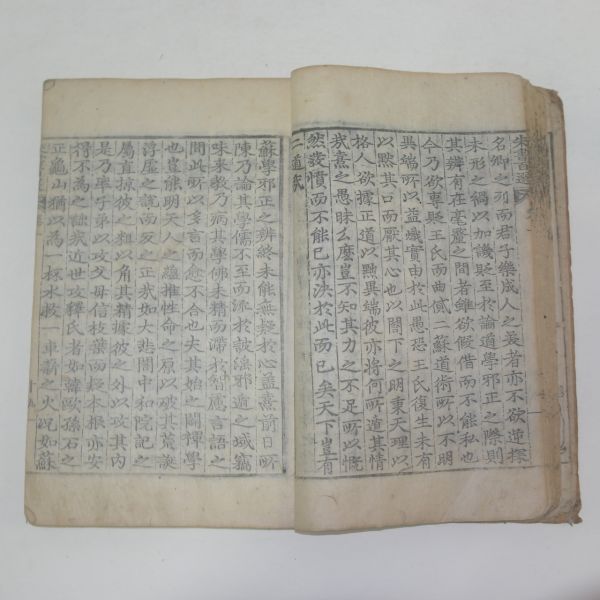 名卿之列而君子樂成人之美者亦不欲逆探
未形之禍以加譏貶至於論道學邪正之際則
其辨有在毫釐之間者雖欲假借而不能私也
今乃欲專貶王氏而曲貸二蘇道術所以不明
異端所以益熾實由於此愚恐王氏復生未有
以黙其口而厭其心也以閤下之明秉天理以
格人欲據正道以黜異端彼亦將何所遁其情
哉熹之愚昧么麼豈不知其力之不足所以慨
然發憤而不能已亦決於此而已矣天下豈有
二道哉
蘇學邪正之辨終未能無疑於心蓋熹前日所
陳乃論其學儒不至而流於詖淫邪遁之域竊
味来教乃病其學佛未精而滯於智慮言語之
間此所以多言而愈不合也夫其始之闢禪學
也豈能明天人之蘊推性命之原以破其荒誕
浮虛之說而反之正哉如大悲閣中和院記之
屬直掠彼之粗以角其精據彼之外以攻其內
是乃率子弟以攻父母信枝葉而疑本根亦安
得不為之詘哉近世攻釋氏者如韓歐孫石之
正龜山猶以為一杯水救一車薪之火況如蘇
十九